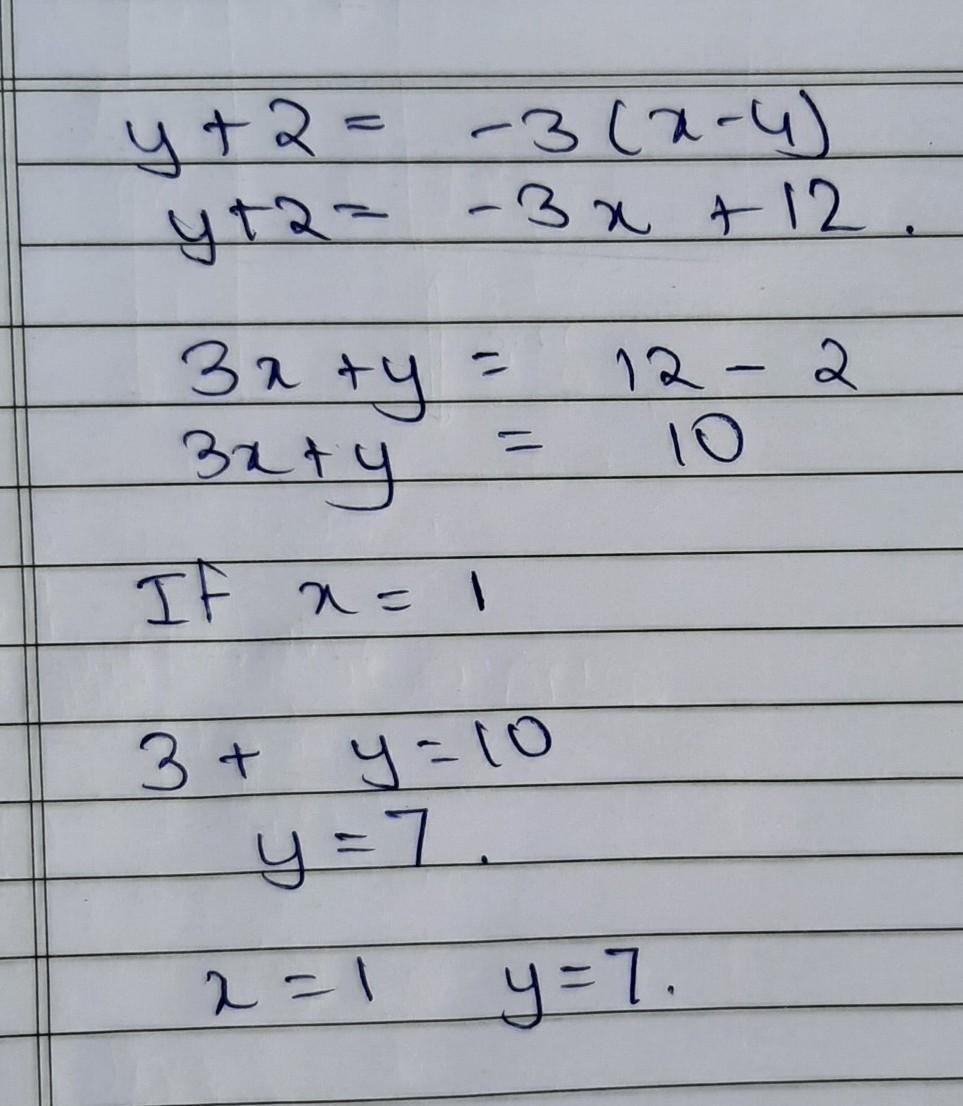 y + 2 = -3 (x - 4)
y + 2 = -3x + 12.
3x + y = 12 - 2
3x + y = 10
If x = 1
3 + y = 10
y = 7.
x = 1 y = 7.